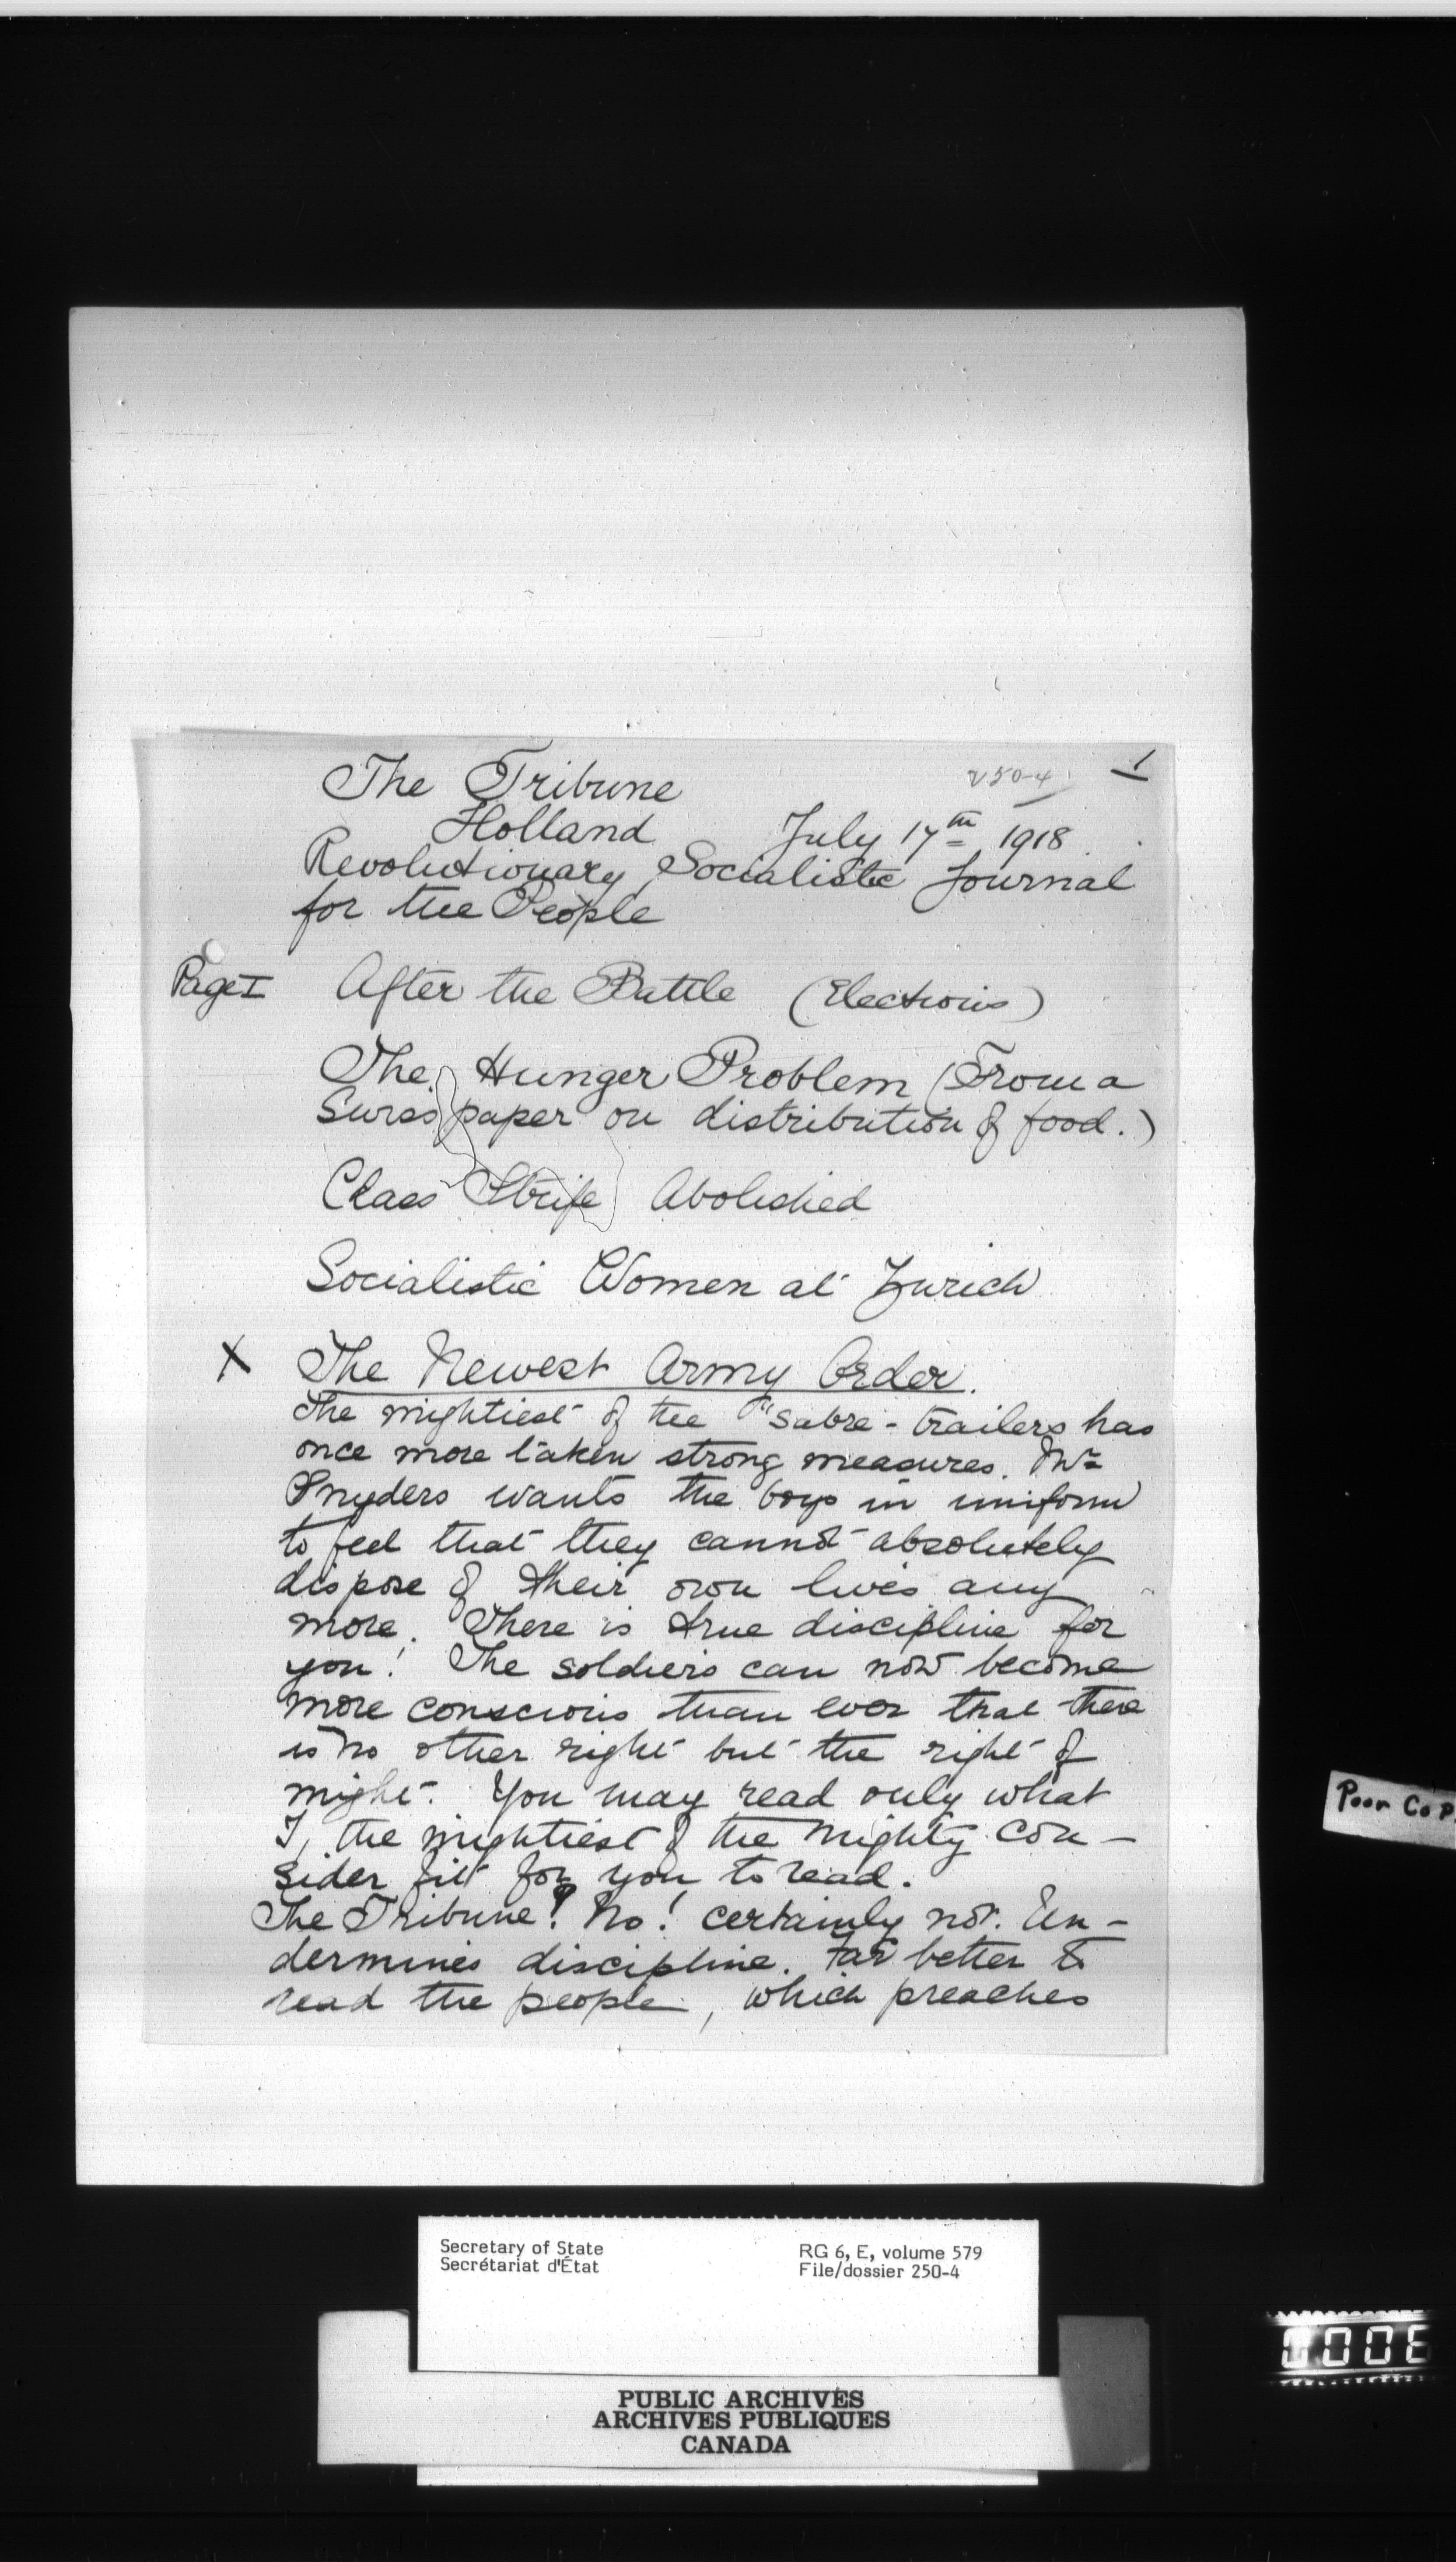 250-4
1
The Tribune
Holland July 17th 1918
Revolutionary Socialistic Journal
for the People
Page I After the Battle (Elections)
The Hunger Problem (From a
Swiss paper on distribution of food.)
Class Strife Abolished
Socialistic Women at Zurich
X The Newest Army Order.
The mightiest of the "Sabre-trailers has
once more taken strong measures. Mr
Snyders wants the boys in uniform
to feel that they cannot absolutely
dispose of their own lives any
more. There is true discipline for
you! The soldiers can now become
more conscious than ever that there
is no other right but the right of
might. You may read only what
I, the mightiest of the mighty con-
sider fit for you to read.
The Tribune? No! certainly not. Un-
dermines discipline. Far better to
read the people, which preaches
Poor Cop
Secretary of State
Secrétariat d'État
RG 6, E, volume 579
File/dossier 250-4
PUBLIC ARCHIVES
ARCHIVES PUBLIQUES
CANADA